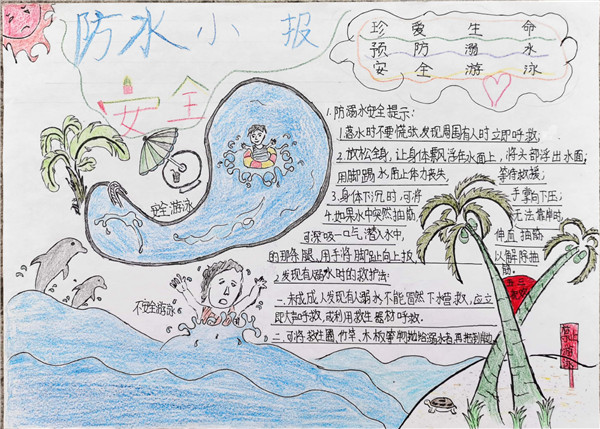 防水小报
安全
珍爱生命
预防溺水
安全游泳
1.防溺水安全提示:
1.落水时不要慌张发现周围有人时立即呼救;
2.放松全身,让身体飘浮在水面上,将头部浮出水面;
用脚踢水,防止体力丧失 等待救援;
3.身体下沉时,可将 手掌向下压;
4.如果水中突然抽筋, 无法靠岸时
可深吸一口气,潜入水中, 伸直抽筋
的那条腿,用手将脚趾向上扳, 以解除抽筋。
2.发现有溺水时的救护法:
一.未成成人发现有溺水不能冒然下水营救,应立
即大声呼救,或利用救生器材呼救。
二.可将救生圈、竹竿、木板等物抛给溺水者,再把
安全游泳
不安全游泳